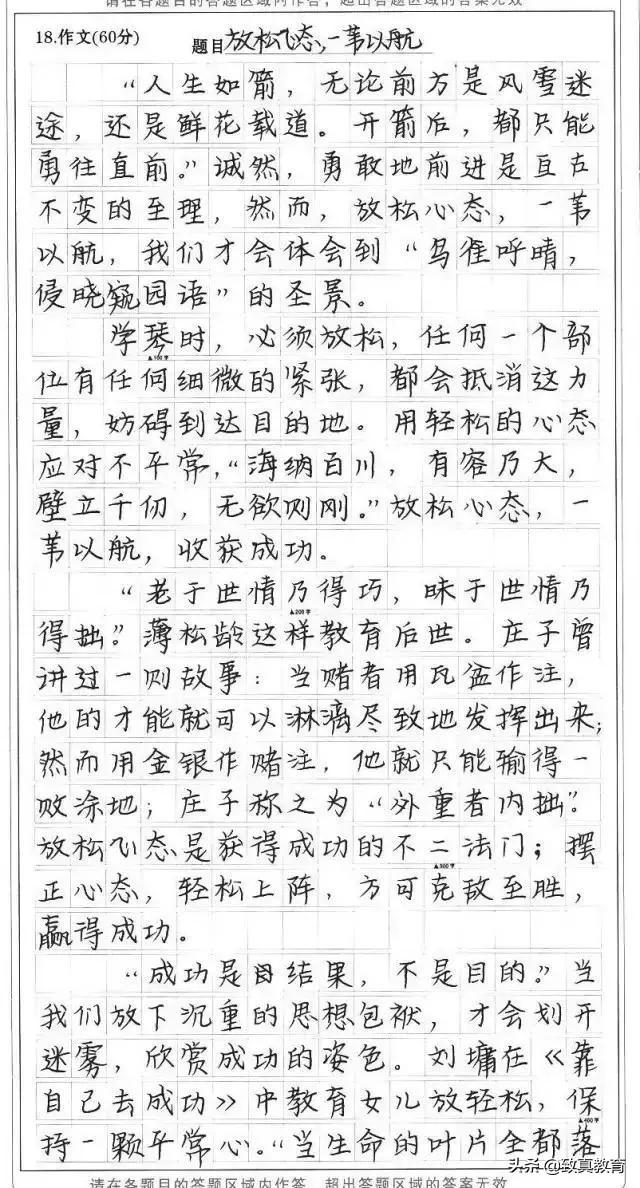 请在各题目的答题区域内作答，超出答题区域的答案无效
18.作文(60分) 题目 放松心态,一苇以航
“人生如箭，无论前方是风雪迷
途，还是鲜花载道。开箭后，都只能
勇往直前。”诚然，勇敢地前进是亘古
不变的至理，然而，放松心态，一苇
以航，我们才会体会到“鸟雀呼晴，
侵晓窥园语”的圣景。
学琴时，必须放松，任何一个部
▲100字
位有任何细微的紧张，都会抵消这力
量，妨碍到达目的地。用轻松的心态
应对不平常，“海纳百川，有容乃大，
壁立千仞，无欲则刚。”放松心态，一
苇以航，收获成功。
“老于世情乃得巧，昧于世情乃
▲200字
得拙”。薄松龄这样教育后世。庄子曾
讲过一则故事：当赌者用瓦盆作注，
他的才能就可以淋漓尽致地发挥出来；
然而用金银作赌注，他就只能输得一
败涂地；庄子称之为“外重者内拙”。
放松心态是获得成功的不二法门；摆
▲300字
正心态，轻松上阵，方可克敌至胜，
赢得成功。
“成功是结果，不是目的。”当
我们放下沉重的思想包袱，才会划开
迷雾，欣赏成功的姿色。刘墉在《靠
自己去成功》中教育女儿放轻松，保
▲400字
持一颗平常心。“当生命的叶片全都落
头条 @致真教育
请在各题目的答题区域内作答，超出答题区域的答案无效